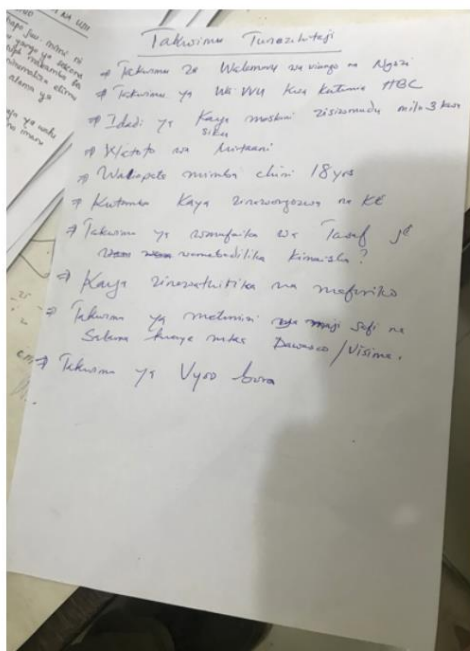 NA USH
Takwimu Tunazohitaji
→ Takwimu za Walemavu wa viungo na Ngozi
→ Takwimu ya WAVVU kwa kutumia HBC
→ Idadi ya Kaya maskini zisizomudu milo 3 kwa
siku
→ Watoto wa Mitaani
→ Waliopata mimba chini 18 yrs
→ Kutambua Kaya zinazoongozwa na KE
→ Takwimu ya wanufaika wa Tasaf je
wamebadilika kimaisha?
→ Kaya zinazoathirika na mafuriko
→ Takwimu ya matumizi ya maji safi na
Salama kwenye mitaa Dawasco / Visima.
→ Takwimu ya Vyoo bora